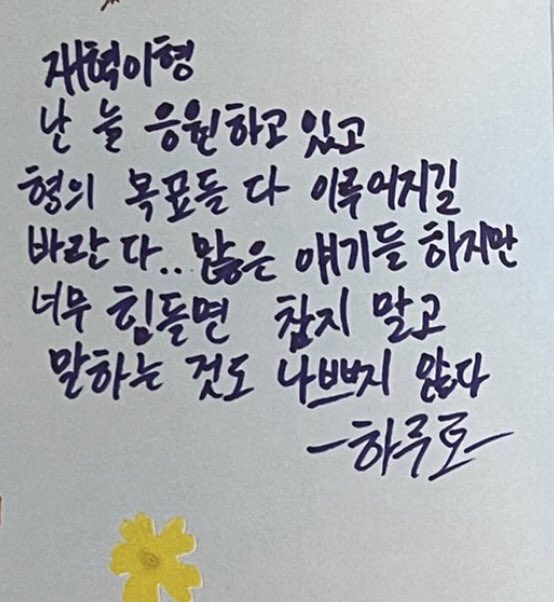 재혁이형
난 늘 응원하고 있고
형의 목표들 다 이루어지길
바란다.. 많은 얘기들 하지만
너무 힘들면 참지 말고
말하는 것도 나쁘지 않다
-하루토-